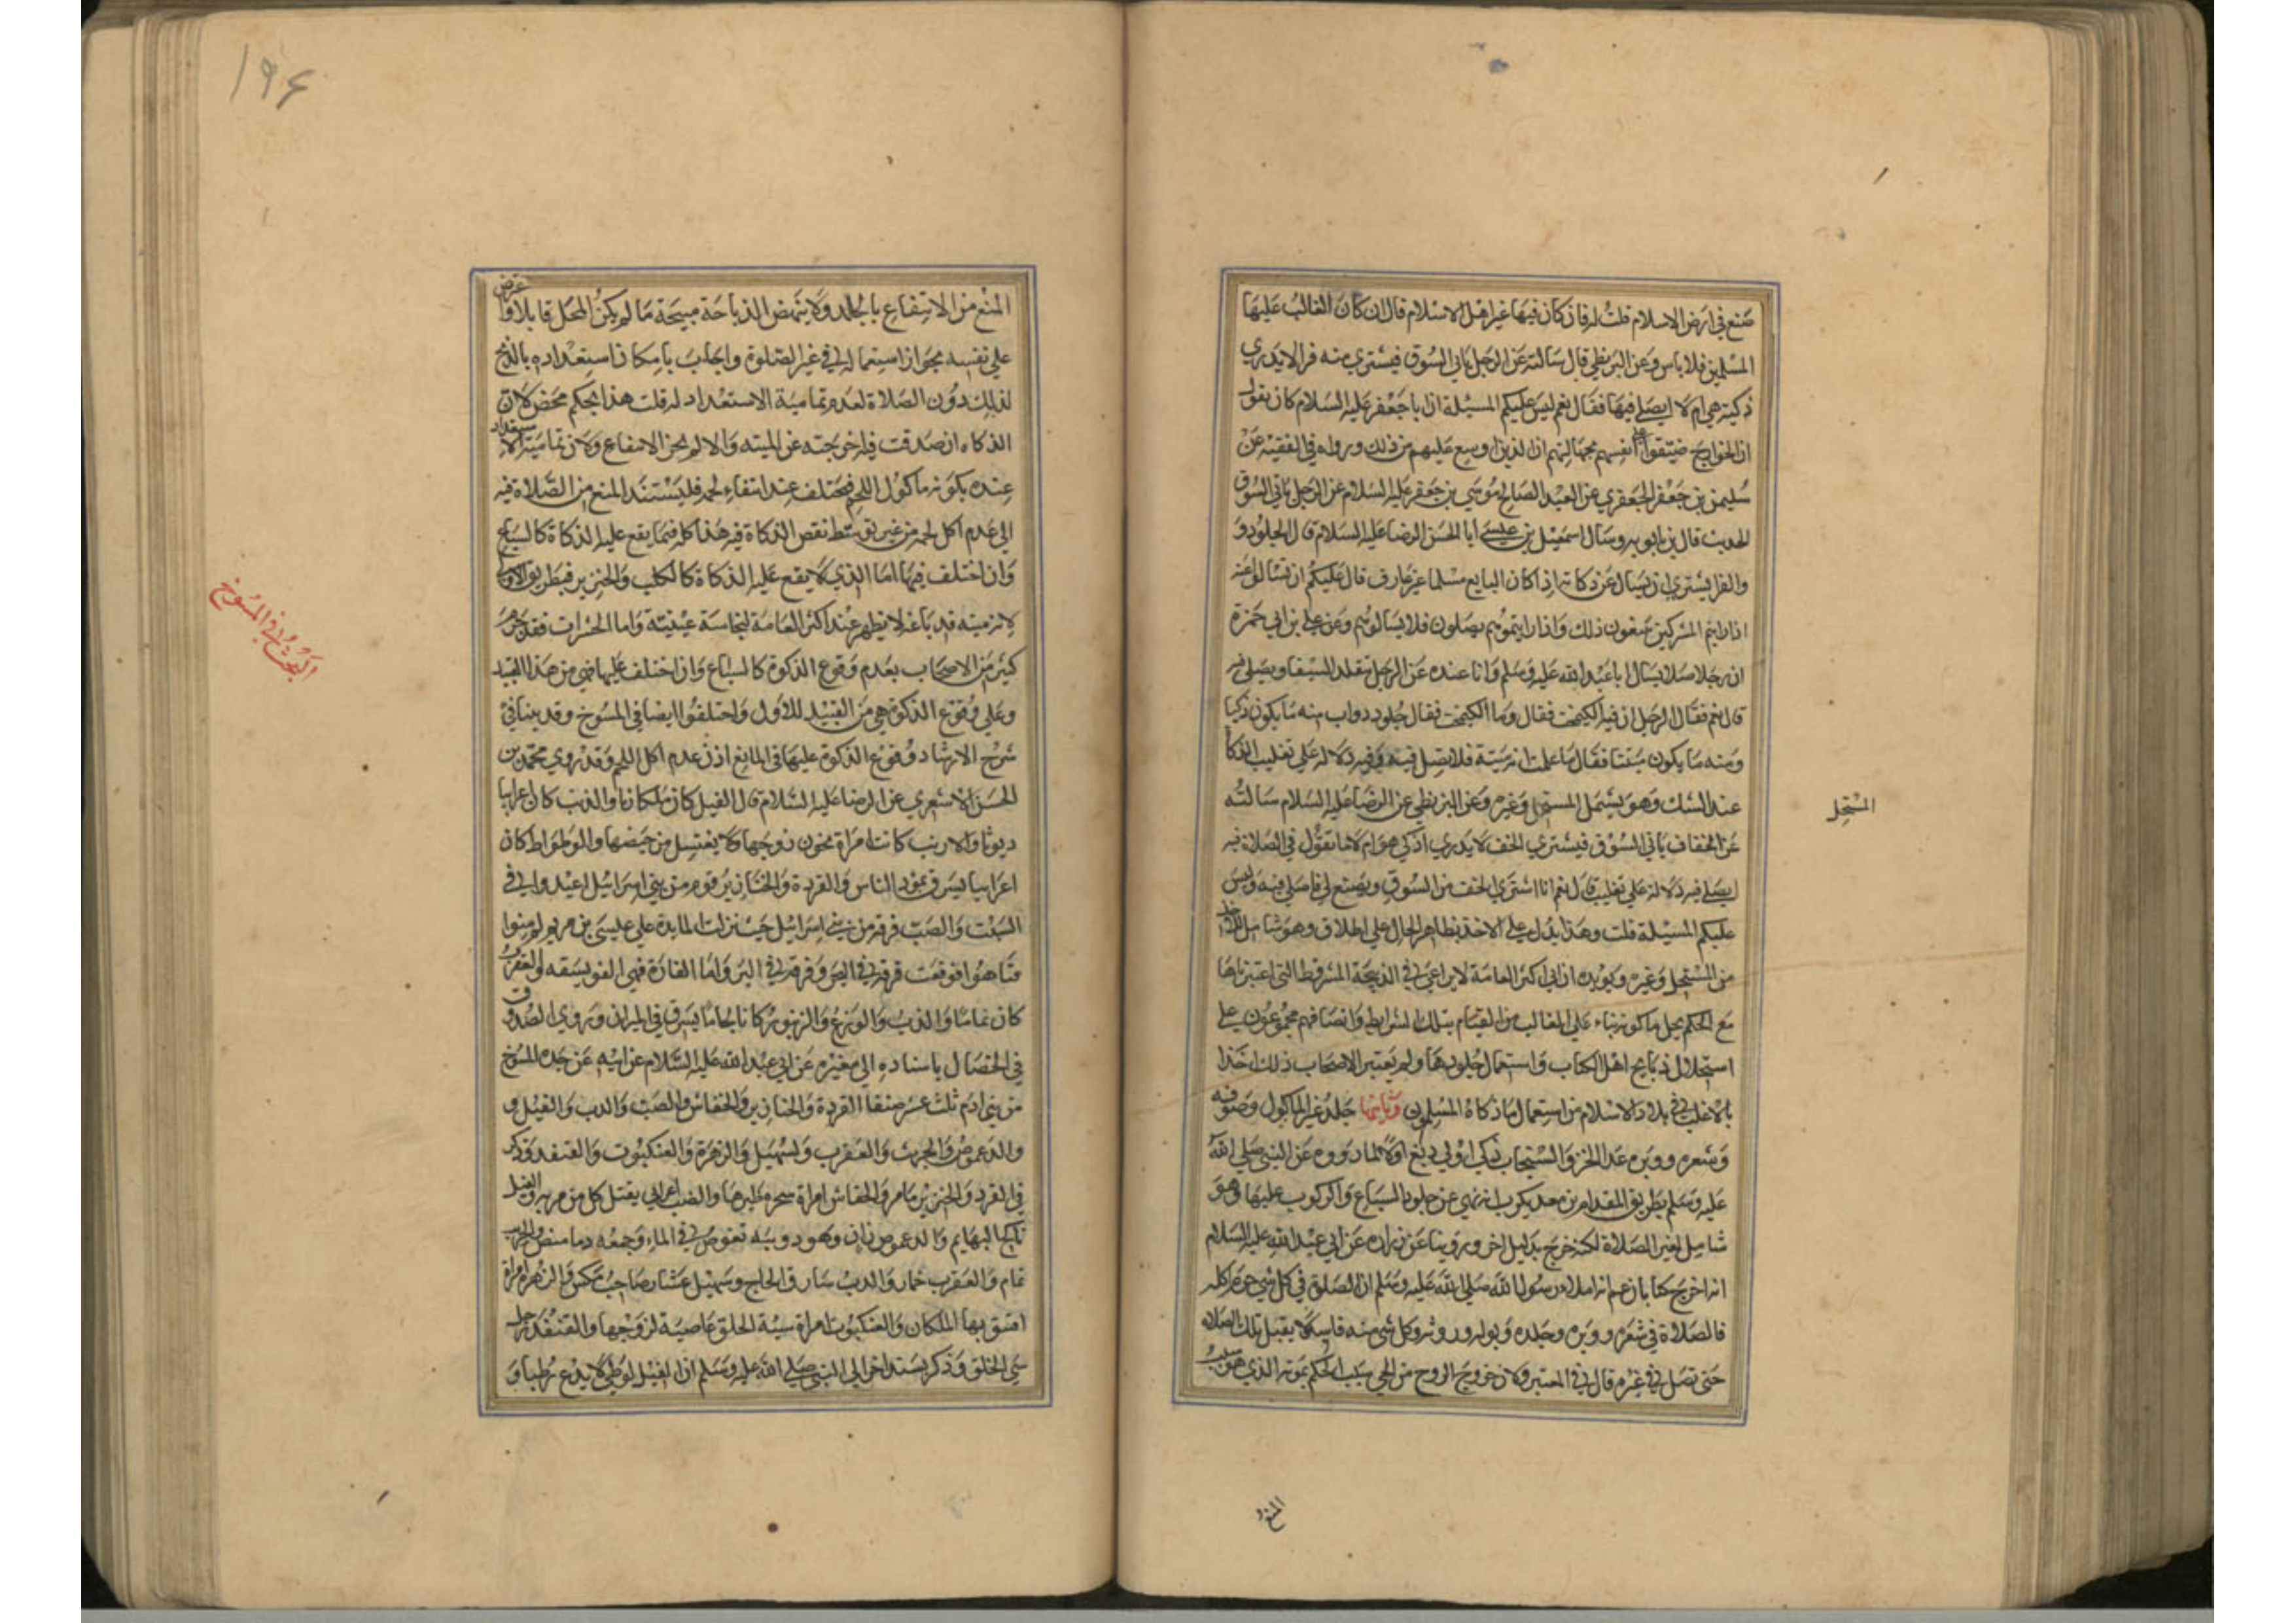 صنع في ارض الاسلام قلت له فان كان فيها غير اهل الاسلام قال ان كان الغالب عليها
المسلمين فلا باس وعن البزنطي قال سالته عن الرجل ياتي السوق فيشتري منه فرا لا يدري
ذكية هي ام لا ايصلي فيها فقال نعم ليس عليكم المسئلة ان ابا جعفر عليه السلام كان يقول
ان الخوارج ضيقوا على انفسهم بجهالتهم ان الدين اوسع عليهم من ذلك ورواه في الفقيه عن
سليمن بن جعفر الجعفري عن العبد الصالح موسى بن جعفر عليه السلام عن الرجل ياتي السوق
الحديث قال بن بابويه وسال اسمعيل بن عيسى ابا الحسن الرضا عليه السلام قال الجلود و
والفرا يشتري ان يسال عن ذكاته اذا كان البايع مسلما غير عارف قال عليكم ان تسالوا عنه
اذا رايتم المشركين يبيعون ذلك واذا رايتموهم يصلون فلا يسالوهم وعن علي بن ابي حمزة
ان رجلا سال ابا عبد الله عليه وسلم وانا عنده عن الرجل يتقلد السيف ويصلي فيه
قال نعم فقال الرجل ان فيه الكيمخت فقال وما الكيمخت فقال جلود دواب منه ما يكون ذكيا
ومنه ما يكون ميتا فقال ما علمت انه ميتة فلا تصل فيه وفيه دلالة على تغليب الذكاة
عند الشك وهو يشمل المستحل وغيره وعن البزنطي عن الرضا عليه السلام سالته
عن الخفاف ياتي السوق فيشتري الخف لا يدري اذكي هو ام لا ما تقول في الصلاة فيه
ايصلي فيه دلالة على تغليب قال نعم انا اشتري الخف من السوق ويصنع لي فاصلي فيه وليس
عليكم المسئلة قلت وهذا يدل على الاخذ بظاهر الحال على اطلاق وهو شامل للاخذ
من المستحل وغيره ويؤيده ان اكثر العامة لا يراعي في الذبيحة الشروط التي اعتبرناها
مع الحكم بحل ما كونه بناء على الغالب من القيام بتلك الشرايط وايضا فهم مجموعون على
استحلال ذبايح اهل الكتاب واستعمال جلودها ولم يعتبر الاصحاب ذلك اخذا
بالاغلب في بلاد الاسلام من استعمال ما ذكاه المسلمون وثانيها جلد غير الماكول وصوفه
وشعره ووبره عدا الخز والسنجاب ذكي او لا دبغ او لا لما رووه عن النبي صلى الله
عليه وسلم بطريق المقدام بن معديكرب انه نهى عن جلود السباع والركوب عليها وهو
شامل لغير الصلاة لكنه خرج بدليل اخر وروينا عن زراره عن ابي عبد الله عليه السلام
انه اخرج كتابا زعم انه املاء رسول الله صلى الله عليه وسلم ان الصلوة في كل شي حرم اكله
فالصلاة في شعره ووبره وجلده وبوله وروثه وكل شي منه فاسد لا يقبل تلك الصلاه
حتى تصلى في غيره قال في المعتبر ولان خروج الروح من الحي سبب الحكم بموته الذي هو سبب
المستحل
المنع
١٩٤
المنع من الانتفاع بالجلد ولا ينهض الذباحة مبيحة ما لم يكن المحل قابلا واعترض
على نفسه بجواز استعماله في غير الصلوة واجاب بامكان استعداده بالذبح
لذلك دون الصلاة لعدم تمامية الاستعداد له قلت هذا تحكم محض لان
الذكاه ان صدقت فيه اخرجته عن الميته والا لم يجز الانتفاع ولان تمامية الاستعداد
عنده بكونه ماكول اللحم فيختلف عند انتفاء لحمه فليستند المنع من الصلاة فيه
الى عدم اكل لحمه من غير توسط نقص الذكاة فيه هذا كله فيما يقع عليه الذكاة كالسباع
وان اختلف فيها اما الذي لا يقع عليه الذكاة كالكلب والخنزير فبطريق الاولى
لانه ميته فدباغه لا يطهر عند اكثر العامة لنجاسة عينيته واما الحشرات فقد حرم
كثير من الاصحاب بعدم وقوع الذكوة كالسباع وان اختلف عليها فهي من هذا القبيل
وعلى وقوع الذكوة هي من القبيل الاول واختلفوا ايضا في المسوخ وقد بينا في
شرح الارشاد وقوع الذكوة عليها في المانع اذن عدم اكل اللحم وقد روى محمد بن
الحسن الاشعري عن الرضا عليه السلام قال الفيل كان ملكا زناء والذئب كان اعرابيا
ديوثا والارنب كانت امراة تخون زوجها ولا يغتسل من حيضها والوطواط كان
اعرابيا ليسرق تمور الناس والقردة والخنازير قوم من بني اسرائيل اعتدوا في
السبت والضب فرقة من بني اسرائيل حيث نزلت المايدة على عيسى بن مريم لم يؤمنوا
فتاهوا فوقعت فرقة في البحر وفرقة في البر واما الفارة فهي الفويسقه والعقرب
كان نماما والدب والوزغ والزنبور كانا لحاما يسرق في الميزان وروى الصدوق
في الخصال باسناده الى مغيره عن ابي عبد الله عليه السلام عن ابيه عن جده المسوخ
من بني ادم ثلث عشر صنفا القردة والخنازير والخفاش والضب والدب والفيل و
والدعموص والجريث والعقرب وسهيل والزهرة والعنكبوت والقنفد وذكر
في القرد والخنزير ما مر والخفاش امراة سحرت ظيرها والضب اعرابي يقتل كل من مر به والفيل
ناكح البهايم والدعموص زان وهو دويبة تغوص في الماء وجمعه دعاميص والجريث
نمام والعقرب همار والدب سارق الحاج وسهيل عشار صاحب مكس والزهره امراة
افتتن بها الملكان والعنكبوت امراة سيئة الخلق عاصية لزوجها والقنفد رجل
سيئ الخلق وذكر بسند اخر الى النبي صلى الله عليه وسلم ان الفيل لوطي لا يدع رطبا و
البحث في المسوخ